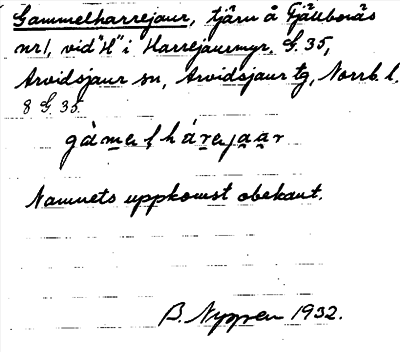 Gammelharrejaur, tjärn å Fjällbonäs
nr1, vid "H" i Harrejaurmyr. G. 35,
Arvidsjaur sn, Arvidsjaur tg, Norrb. l.
8 G. 35.
gàmelhárejaar
Namnets uppkomst obekant.
B. Nyppen 1932.